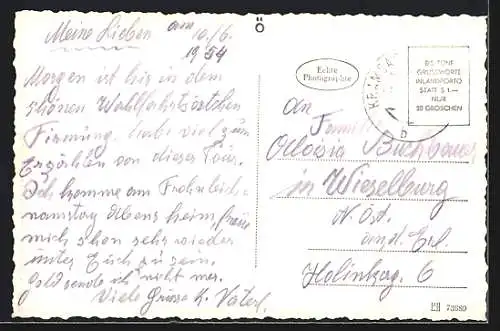 Meine Lieben am 10./6.
1954
Morgen ist hier in dem
schönen Wallfahrtsörtchen
Firmung, habe viel zum
Erzählen von dieser Tour.
Ich komme am Frohnleich-
namstag Abens heim freue
mich schon sehr wieder
unter Euch zu sein.
Geld sende ich nicht mer.
Viele Grüsse K. Vater.
Ö
Echte
Photographie
BIS FÜNF
GRUSSWORTE
INLANDPORTO
STATT S 1.—
NUR
30 GROSCHEN
An
Familie
Aloisia
in Wieselburg
N. Öst.
a. d. Erl.
6
73989